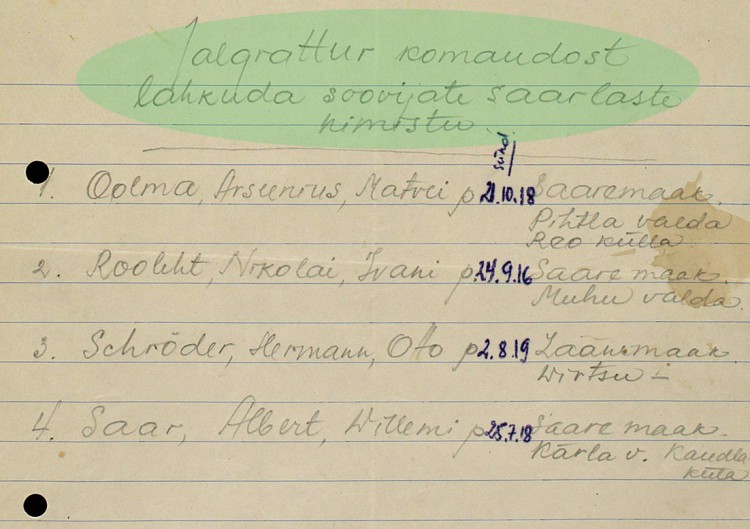 Jalgrattur komandost
lahkuda soovijate saarlaste
nimistu.
sünd.
1. Oolma, Arsenius, Matvei p. 21.10.18 Saaremaak.
Pihtla valda
Reo külla
2. Rooleht, Nikolai, Ivani p. 24.9.16 Saare maak.
Muhu valda
3. Schröder, Hermann, Otto p. 2.8.19 Läänemaak
Wirtsu
4. Saar, Albert, Willemi p. 25.7.18 Saare maak.
Kärla v. Kandla
küla